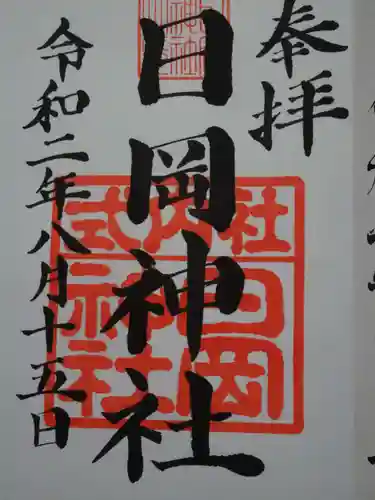 奉拝
日岡神社
令和二年八月十五日
式内社
日岡神社